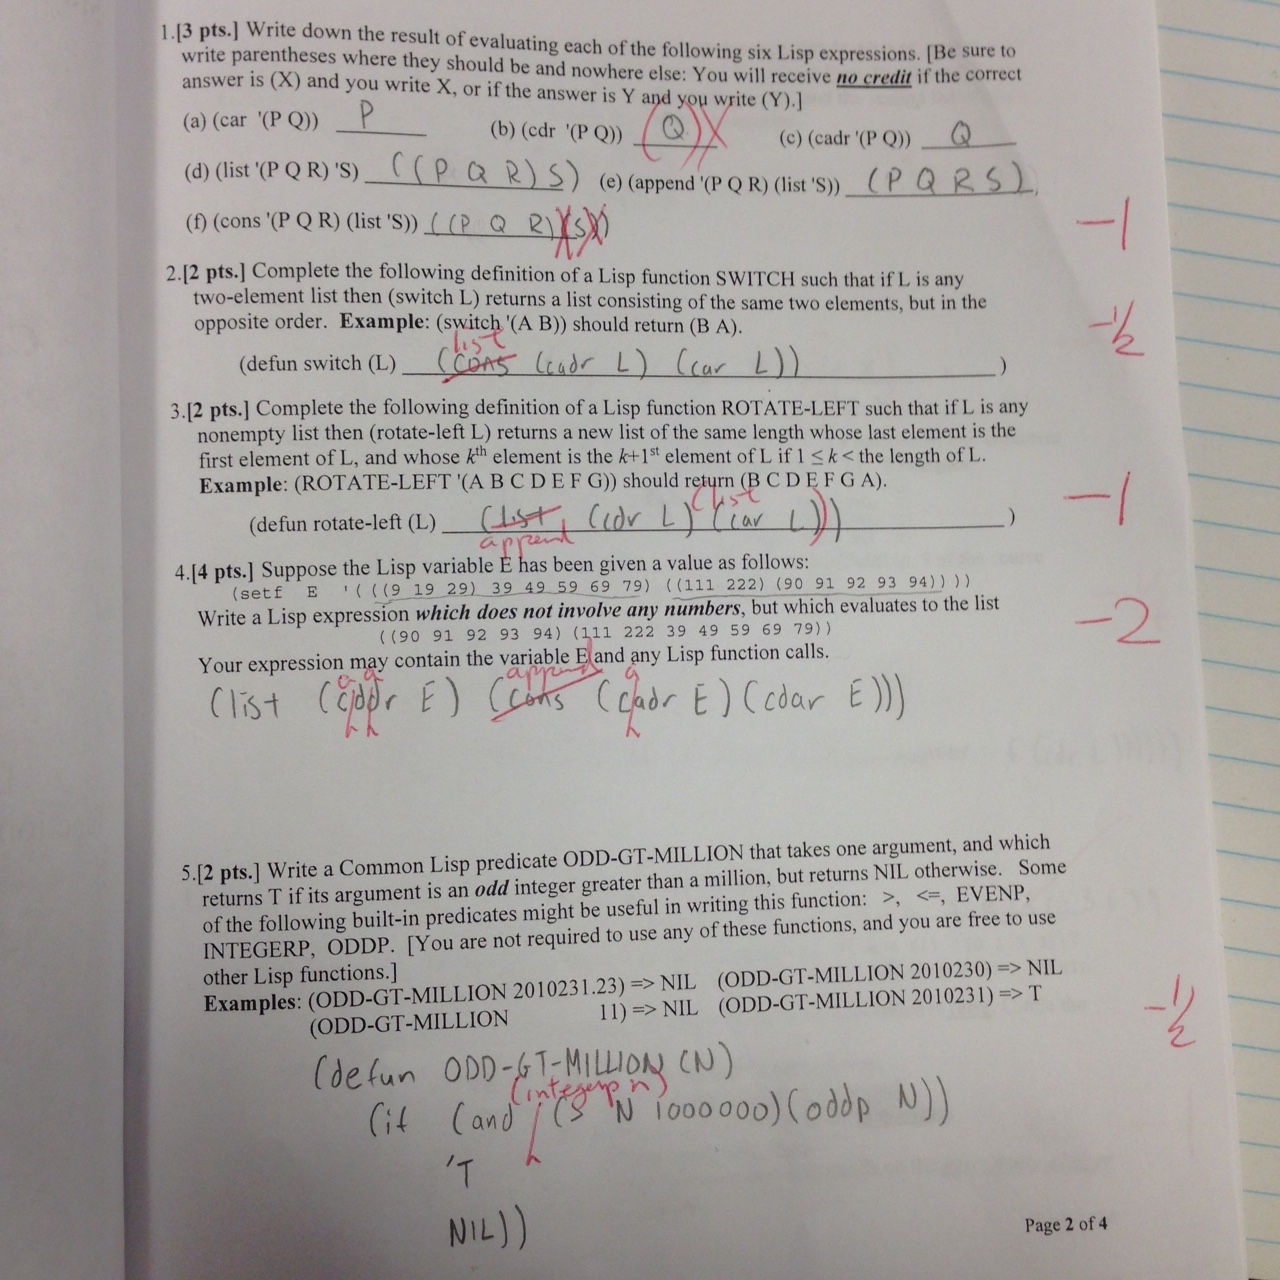 1.[3 pts.] Write down the result of evaluating each of the following six Lisp expressions. [Be sure to
write parentheses where they should be and nowhere else: You will receive no credit if the correct
answer is (X) and you write X, or if the answer is Y and you write (Y).]
(a) (car '(P Q)) P (b) (cdr '(P Q)) (Q) (c) (cadr '(P Q)) Q
(d) (list '(P Q R) 'S) ((P Q R) S) (e) (append '(P Q R) (list 'S)) (P Q R S)
(f) (cons '(P Q R) (list 'S)) ((P Q R)(S))
-1
2.[2 pts.] Complete the following definition of a Lisp function SWITCH such that if L is any
two-element list then (switch L) returns a list consisting of the same two elements, but in the
opposite order. Example: (switch '(A B)) should return (B A).
-1/2
list
(defun switch (L) (cons (cadr L) (car L)) )
3.[2 pts.] Complete the following definition of a Lisp function ROTATE-LEFT such that if L is any
nonempty list then (rotate-left L) returns a new list of the same length whose last element is the
first element of L, and whose kth element is the k+1st element of L if 1 ≤ k < the length of L.
Example: (ROTATE-LEFT '(A B C D E F G)) should return (B C D E F G A).
-1
(list
(defun rotate-left (L) (list (cdr L) (car L))) )
append
4.[4 pts.] Suppose the Lisp variable E has been given a value as follows:
(setf E '( ((9 19 29) 39 49 59 69 79) ((111 222) (90 91 92 93 94)) ))
Write a Lisp expression which does not involve any numbers, but which evaluates to the list
((90 91 92 93 94) (111 222 39 49 59 69 79))
-2
Your expression may contain the variable E and any Lisp function calls.
a a append a
(list (cddr E) (cons (cadr E) (cdar E)))
5.[2 pts.] Write a Common Lisp predicate ODD-GT-MILLION that takes one argument, and which
returns T if its argument is an odd integer greater than a million, but returns NIL otherwise. Some
of the following built-in predicates might be useful in writing this function: >, <=, EVENP,
INTEGERP, ODDP. [You are not required to use any of these functions, and you are free to use
other Lisp functions.]
Examples: (ODD-GT-MILLION 2010231.23) => NIL (ODD-GT-MILLION 2010230) => NIL
(ODD-GT-MILLION 11) => NIL (ODD-GT-MILLION 2010231) => T
-1/2
(defun ODD-GT-MILLION (N)
(integerp n)
(if (and (> N 1000000)(oddp N))
'T
NIL))
Page 2 of 4